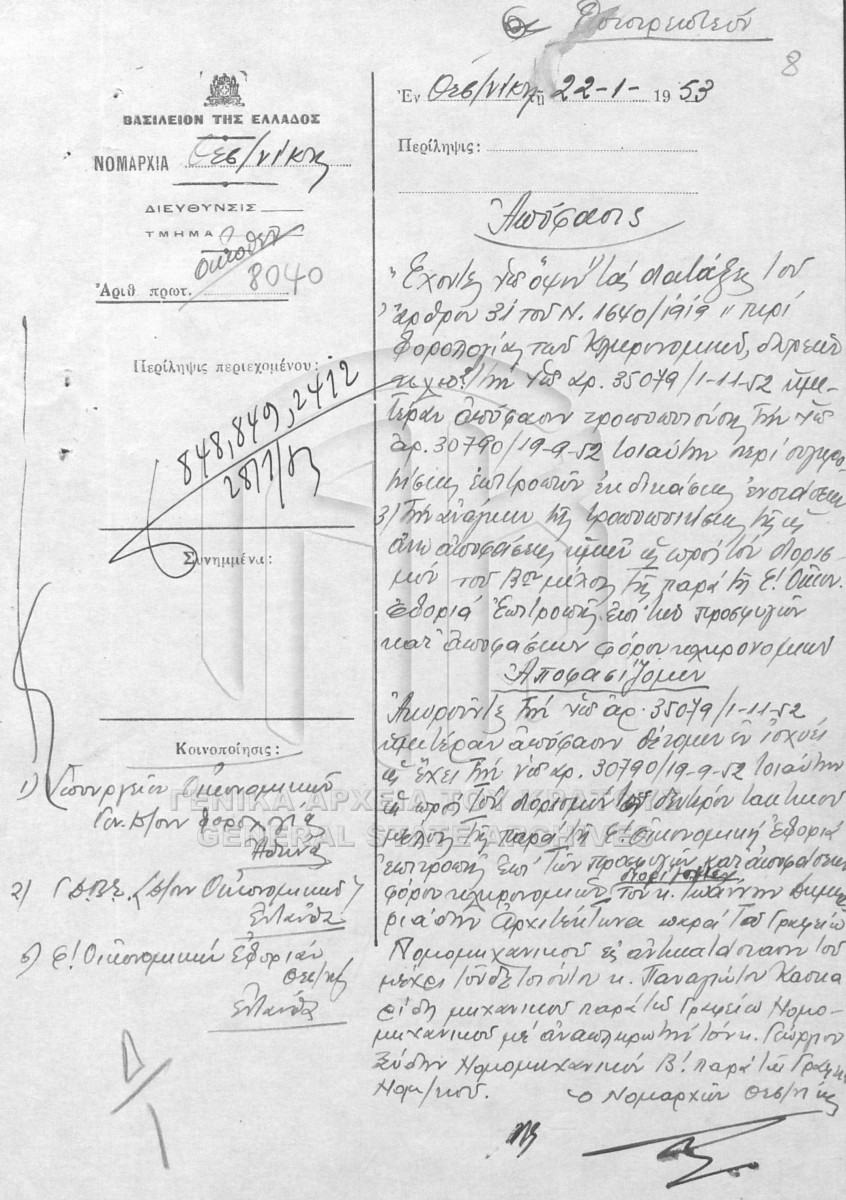 Επιστρεπτέον
8
ΒΑΣΙΛΕΙΟΝ ΤΗΣ ΕΛΛΑΔΟΣ
ΝΟΜΑΡΧΙΑ Θεσ/νίκης
ΔΙΕΥΘΥΝΣΙΣ
ΤΜΗΜΑ
Οἴκοθεν
Ἀριθ πρωτ. 8040
Περίληψις περιεχομένου:
848, 849, 2412
28/1/53
Συνημμένα:
Κοινοποίησις:
1) Ὑπουργεῖον Οἰκονομικῶν
Γεν. Δ/σιν Φορολογίας
Ἀθήνας
2) Γ.Δ.Β.Ε. (Δ/σιν Οἰκονομικῶν)
Ἐνταῦθα
Οἰκονομικήν Ἐφορίαν
Θεσ/κης
Ἐνταῦθα
Ἐν Θεσ/νίκῃ τῇ 22-1- 1953
Περίληψις:
Ἀπόφασις
Ἔχοντες ὑπ' ὄψιν 1) τάς διατάξεις τοῦ
ἄρθρου 31 τοῦ Ν. 1640/1919 "περί
φορολογίας τῶν κληρονομιῶν, δωρεῶν
τήν ὑπ' ἀρ. 35079/1-11-52 ἡμε-
τέραν ἀπόφασιν τροποποιοῦσαν τήν ὑπ'
ἀρ. 30790/19-9-52 τοιαύτην περί συγκρο-
τήσεως ἐπιτροπῶν ἐκδικάσεως ἐνστάσεων
3) Τήν ἀνάγκην τῆς τροποποιήσεως τῆς ὡς
ἄνω ἀποφάσεως ἡμῶν ὡς πρός τόν διορισ-
μόν τοῦ Βου μέλους τῆς παρά τῇ Ε! Οἰκον.
Ἐφορίᾳ Ἐπιτροπῆς ἐπί τῶν προσφυγῶν
κατ' ἀποφάσεων φόρου κληρονομιῶν
Ἀποφασίζομεν
Ἀκυροῦντες τήν ὑπ' ἀρ. 35079/1-11-52
ἡμετέραν ἀπόφασιν θέτομεν ἐν ἰσχύει
ὡς ἔχει τήν ὑπ' ἀρ. 30790/19-9-52 τοιαύτην
ὡς πρός τόν διορισμόν δευτέρου τακτικοῦ
μέλους τῆς παρά τῇ Ε! Οἰκονομικῇ Ἐφορίᾳ
ἐπιτροπῆς ἐπί τῶν προσφυγῶν κατ' ἀποφάσεων
διορίζομεν
φόρου κληρονομιῶν τόν κ. Ἰωάννην Δημη-
ριάδην Ἀρχιτέκτονα παρά τῷ Γραφείῳ
Νομομηχανικοῦ εἰς ἀντικατάστασιν τοῦ
μέχρι τοῦδε τοιούτου κ. Παναγιώτου Κασκα
ρίδη μηχανικοῦ παρά τῷ Γραφείῳ Νομο-
μηχανικοῦ μέ ἀναπληρωτήν τόν κ. Γεώργιον
Νομομηχανικόν Β! παρά τῷ Γραφείῳ
Νομ/κοῦ.
Ὁ Νομαρχῶν Θεσ/κης
Δ/1
ΓΕΝΙΚΑ ΑΡΧΕΙΑ ΤΟΥ ΚΡΑΤΟΥΣ
GENERAL STATE ARCHIVES